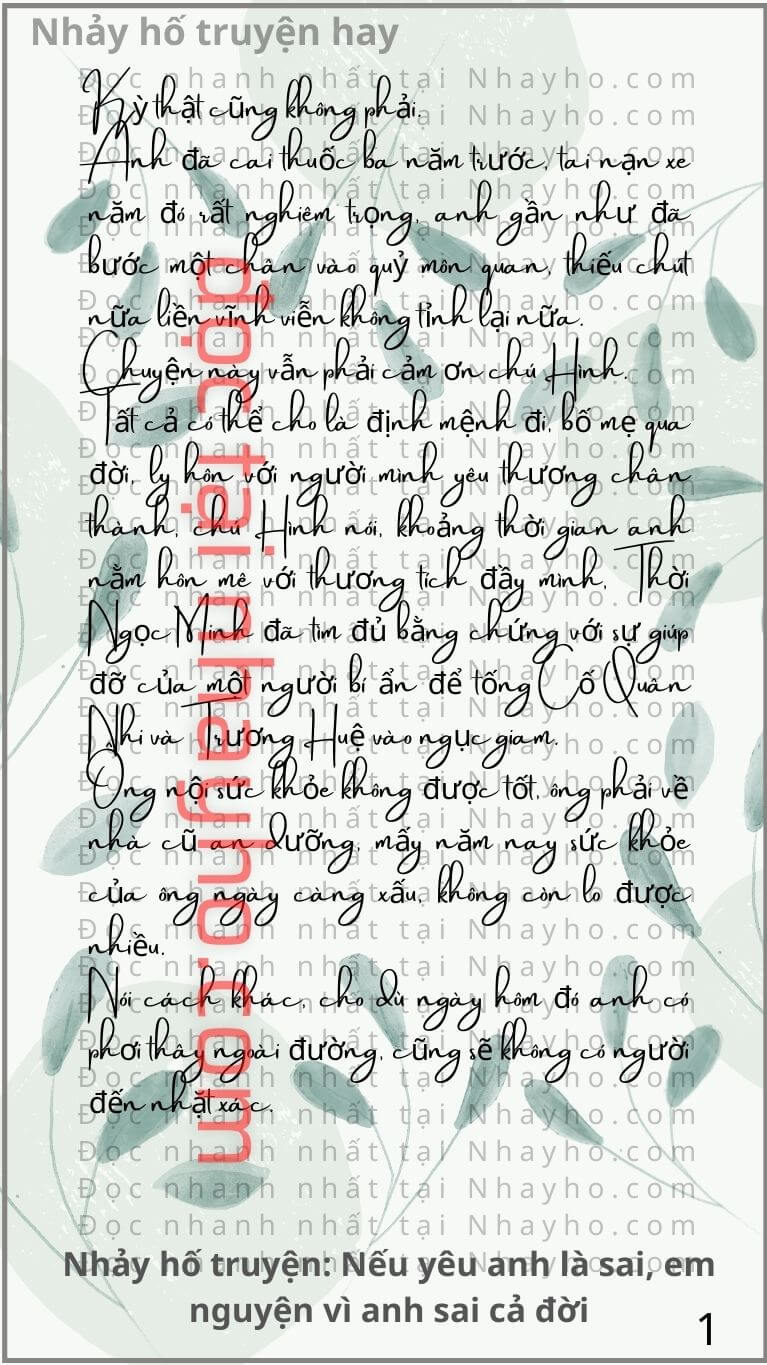 Nhảy hố truyện hay
Kỳ thật cũng không phải.
Anh đã cai thuốc ba năm trước, tai nạn xe
năm đó rất nghiêm trọng, anh gần như đã
bước một chân vào quỷ môn quan, thiếu chút
nữa liền vĩnh viễn không tỉnh lại nữa.
Chuyện này vẫn phải cảm ơn chú Hình.
Tất cả có thể cho là định mệnh đi, bố mẹ qua
đời, ly hôn với người mình yêu thương chân
thành, chú Hình nói, khoảng thời gian anh
nằm hôn mê với thương tích đầy mình, Thời
Ngọc Minh đã tìm đủ bằng chứng với sự giúp
đỡ của một người bí ẩn để tống Cố Quân
Nhi và Trương Huệ vào ngục giam.
Ông nội sức khỏe không được tốt, ông phải về
nhà cũ an dưỡng, mấy năm nay sức khỏe
của ông ngày càng xấu, không còn lo được
nhiều.
Nói cách khác, cho dù ngày hôm đó anh có
phơi thây ngoài đường, cũng sẽ không có người
đến nhặt xác.
đọc tại nhayho.com
Đọc nhanh nhất tại Nhayho.com
Nhảy hố truyện: Nếu yêu anh là sai, em
nguyện vì anh sai cả đời
1